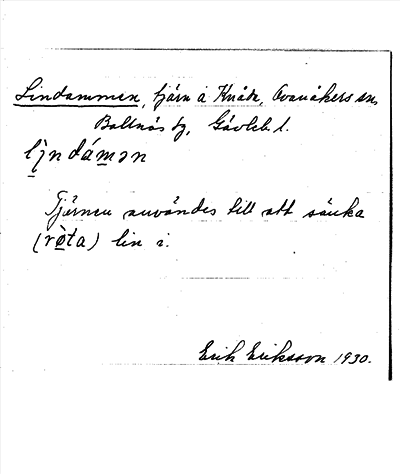 Lindammen, tjärn å Knåda, Ovanåkers sn,
Bollnäs tg, Gävleb. l.
li̱ndámən
Tjärnen användes till att sänka
(rö̱ta) lin i.
Erik Eriksson 1930.